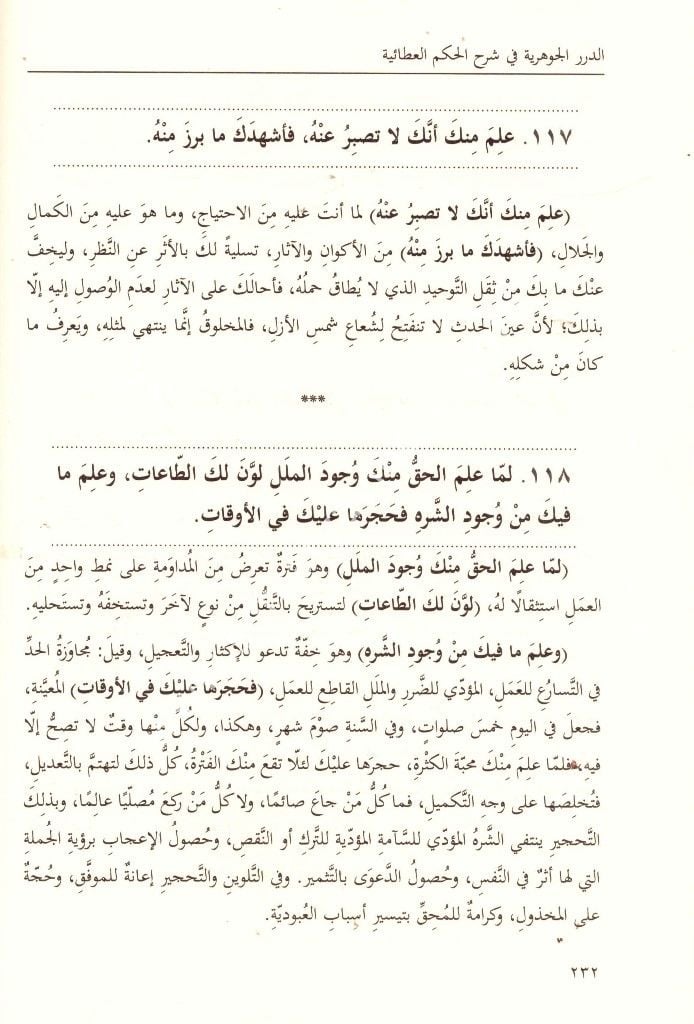 الدرر الجوهرية في شرح الحكم العطائية
١١٧. علِمَ مِنكَ أنَّكَ لا تصبِرُ عنْهُ، فأشهدَكَ ما برزَ مِنْهُ.
(علِمَ مِنكَ أنَّكَ لا تصبِرُ عنْهُ) لما أنتَ عَليهِ مِنَ الاحتياجِ، وما هوَ عليهِ مِنَ الكَمالِ
والجَلالِ، (فأشهدَكَ ما برزَ مِنْهُ) مِنَ الأكوانِ والآثارِ، تسليةً لكَ بالأثَرِ عنِ النَّظرِ، وليخِفَّ
عنْكَ ما بِكَ مِنْ ثِقَلِ التَّوحيدِ الذي لا يُطاقُ حملُهُ، فأحالَكَ على الآثارِ لعدَمِ الوُصولِ إليهِ إلّا
بذلِكَ؛ لأنَّ عينَ الحدثِ لا تنفَتِحُ لِشُعاعِ شمسِ الأزلِ، فالمخلوقُ إنَّما ينتهي لمثلِهِ، ويَعرِفُ ما
كانَ مِنْ شكلِهِ.
***
١١٨. لمّا علِمَ الحقُّ مِنْكَ وُجودَ الملَلِ لوَّنَ لكَ الطّاعاتِ، وعلِمَ ما
فيكَ مِنْ وُجودِ الشَّرهِ فحَجَرَها عليْكَ في الأوقاتِ.
(لمّا علِمَ الحقُّ مِنْكَ وُجودَ المللِ) وهوَ فَترةٌ تعرِضُ مِنَ المُداوَمةِ على نمطٍ واحِدٍ مِنَ
العمَلِ استِثقالًا لهُ، (لوَّنَ لكَ الطّاعاتِ) لتستريحَ بالتَّنقُّلِ مِنْ نوعٍ لآخَرَ وتستخِفَهُ وتستَحليهِ.
(وعلِمَ ما فيكَ مِنْ وُجودِ الشَّرهِ) وهوَ خِفّةٌ تدعو للإكثارِ والتَّعجيلِ، وقيلَ: مُجاوَزةُ الحدِّ
في التَّسارُعِ للعَمَلِ، المؤدّي للضَّررِ والمللِ القاطِعِ للعملِ، (فحَجَرَها عليْكَ في الأوقاتِ) المُعيَّنةِ،
فجعلَ في اليومِ خمسَ صلواتٍ، وفي السَّنةِ صوْمَ شهرٍ، وهكذا، ولكُلٍّ مِنْها وقتٌ لا تصِحُّ إلّا
فيهِ، فلمّا علِمَ مِنْكَ محبّةَ الكثْرةِ، حجرَها عليْكَ لئلّا تقعَ مِنْكَ الفَتْرةُ، كُلُّ ذلكَ لتهتمَّ بالتَّعديلِ،
فتُخلِصَها على وجهِ التَّكميلِ، فما كُلُّ مَنْ جاعَ صائمًا، ولا كُلُّ مَنْ ركعَ مُصلّيًا عالِمًا، وبذلِكَ
التَّحجيرِ ينتفي الشَّرهُ المؤدّي للسَّآمةِ المؤدّيةِ للتَّركِ أو النَّقصِ، وحُصولُ الإعجابِ برؤيةِ الجُملةِ
التي لها أثرٌ في النَّفسِ، وحُصولُ الدَّعوَى بالتَّثميرِ. وفي التَّلوينِ والتَّحجيرِ إعانةٌ للموفَّقِ، وحُجّةٌ
على المخذولِ، وكرامةٌ للمُحِقِّ بتيسيرِ أسبابِ العُبوديّةِ.
٢٣٢